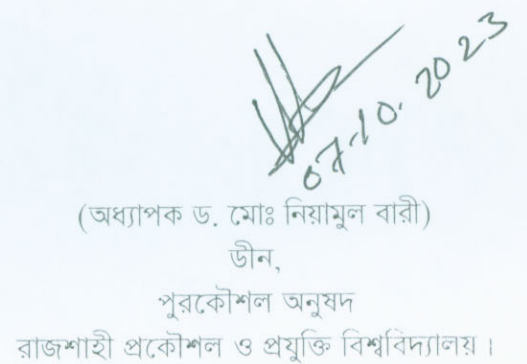 07.10.2023
(অধ্যাপক ড. মোঃ নিয়ামুল বারী)
ডীন,
পুরকৌশল অনুষদ
রাজশাহী প্রকৌশল ও প্রযুক্তি বিশ্ববিদ্যালয়।